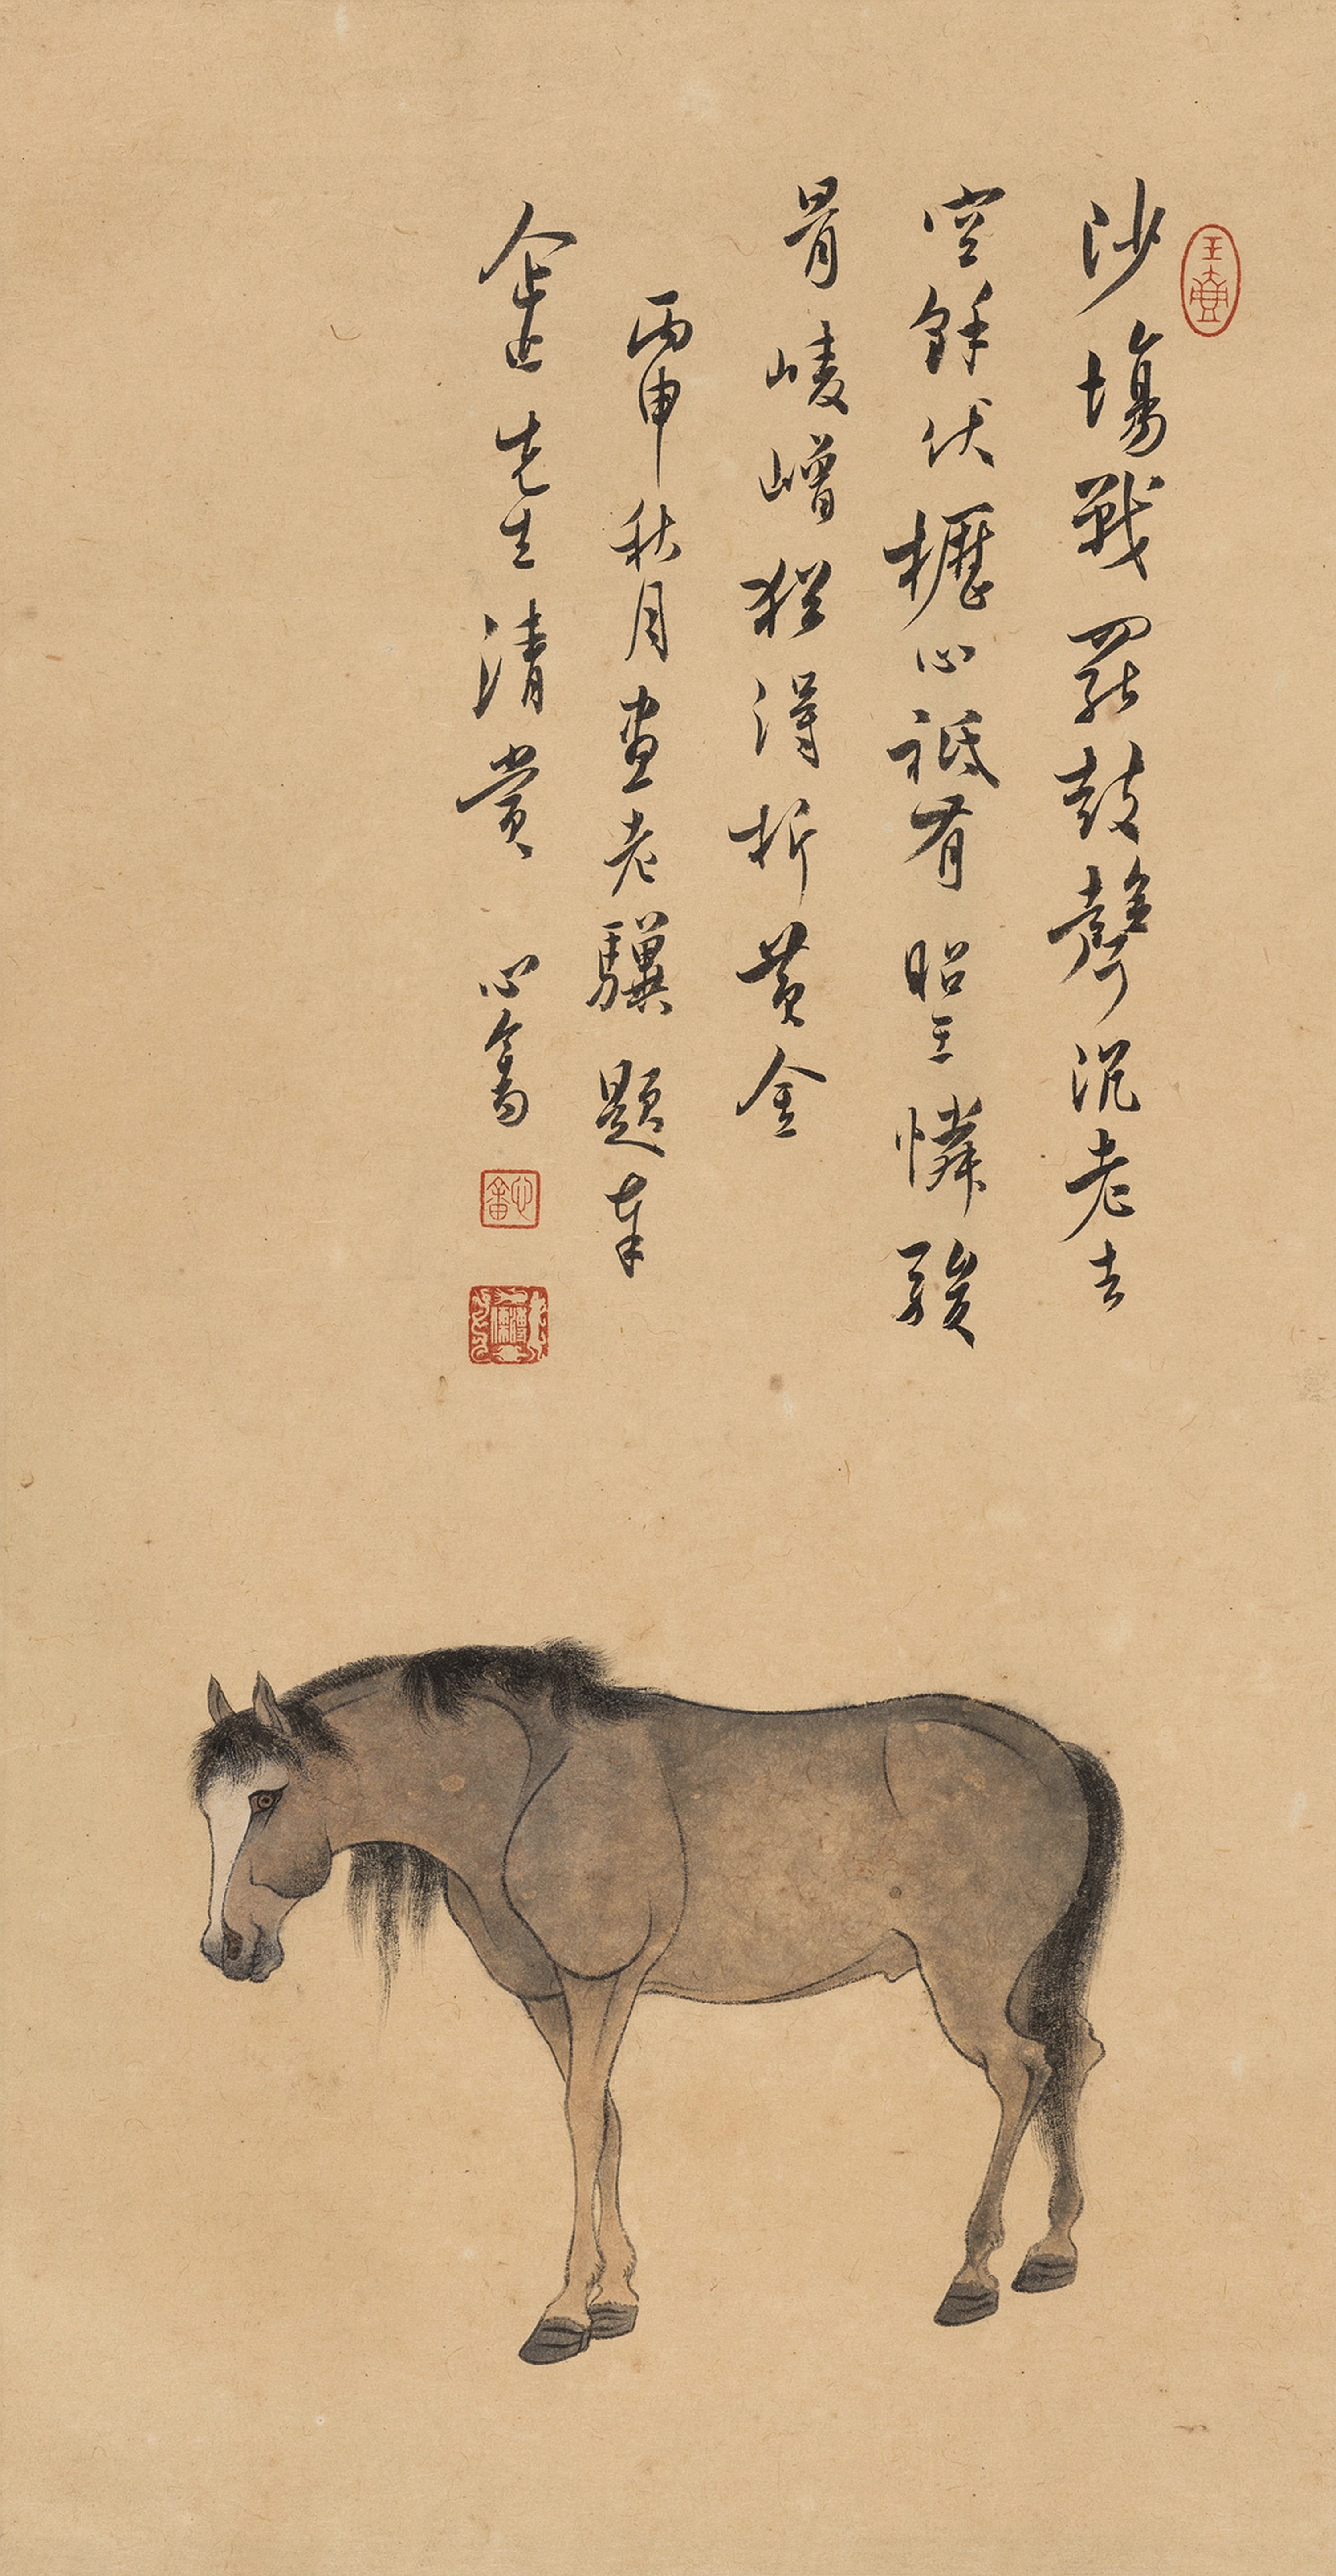 沙場戰罷鼓聲沉老去
空餘伏櫪心祗有昭王憐駿
骨崚嶒猶得折黃金
丙申秋月畫老驥題奉
企止先生清賞 心畬
玉壺
心畬
溥儒